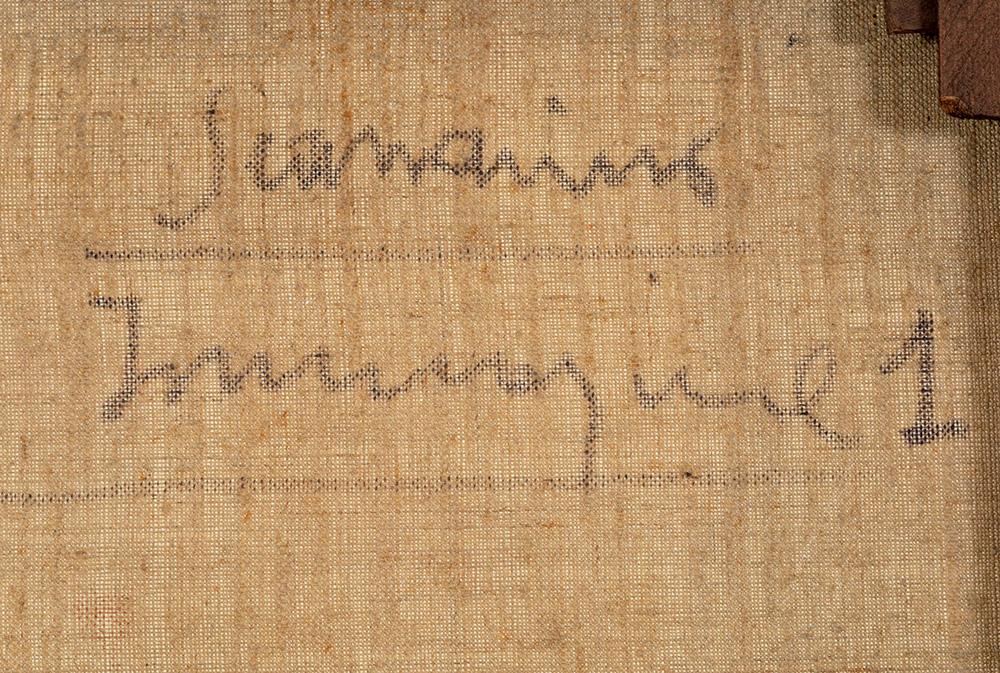 Scanavino
Immagine 1